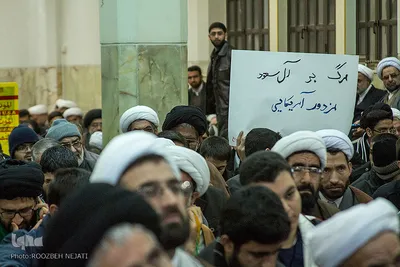 مرگ بر آل سعود
مزدور آمریکایی
Photo:ROOZBEH NEJATI